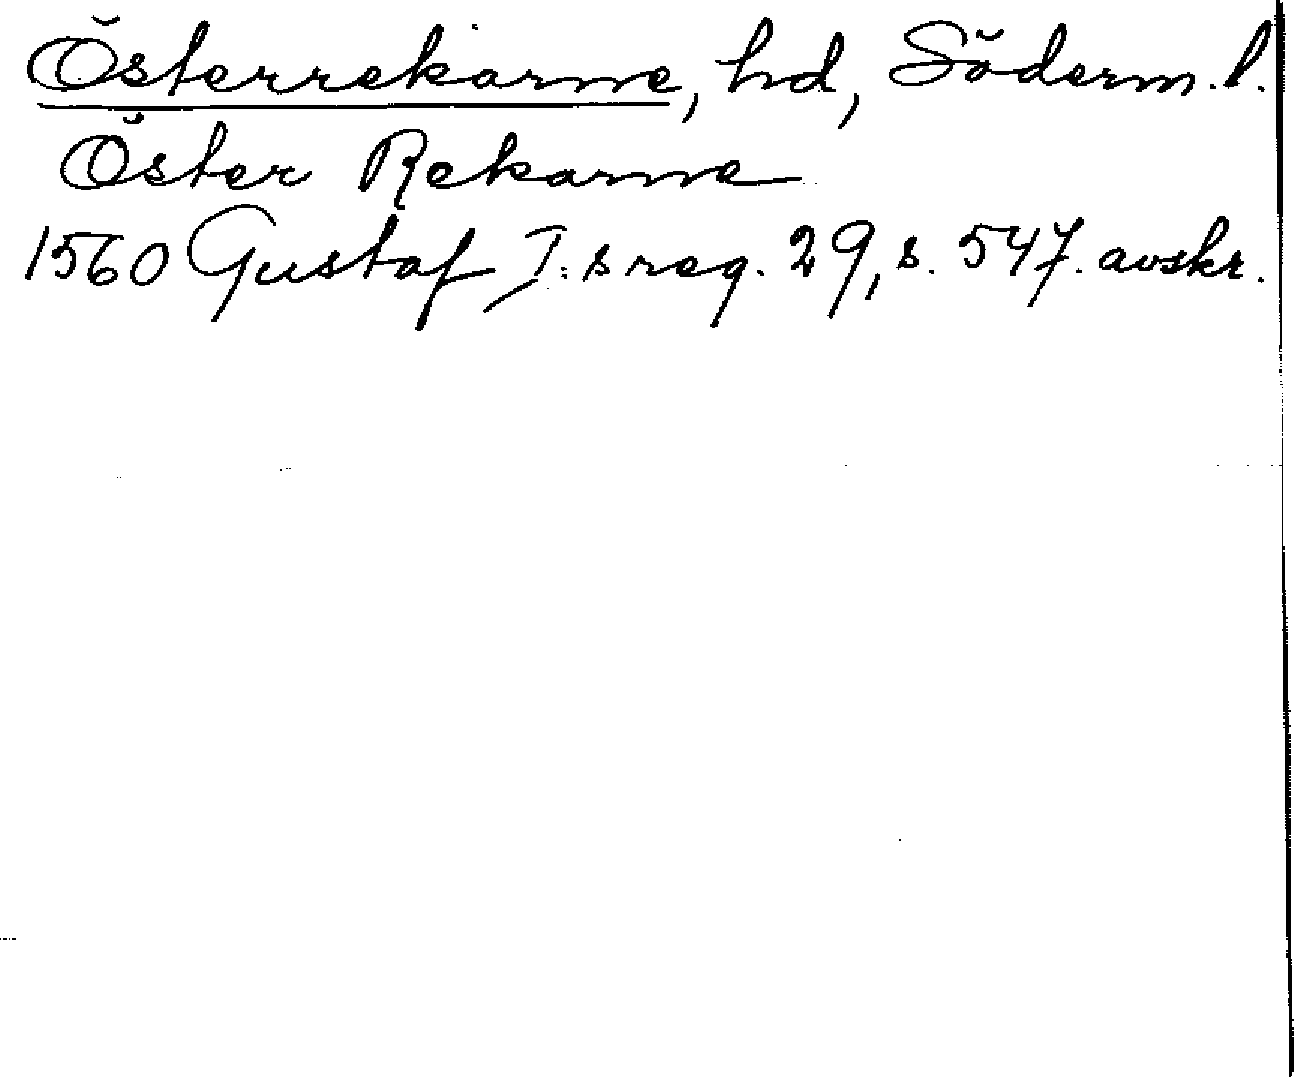 Österrekarne, hd, Söderm. l.
Öster Rekarne
1560 Gustaf I:s reg. 29, s. 547. avskr.